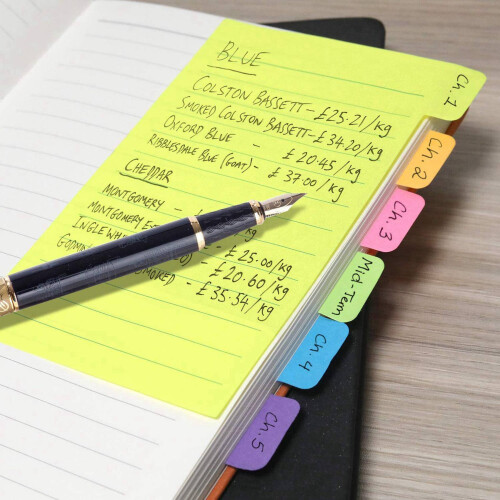 BLUE
COLSTON BASSETT - £25.21/kg
SMOKED COLSTON BASSETT - £34.20/kg
OXFORD BLUE - £20.45/kg
RIBBLESDALE BLUE (GOAT) - £37.00/kg
CHEDDAR
MONTGOMERY - £
MONTGOMERY - £25.00/kg
£20.60/kg
SMOKED - £35.54/kg
Ch.1
Ch.2
Ch.3
Mid-Term
Ch.4
Ch.5